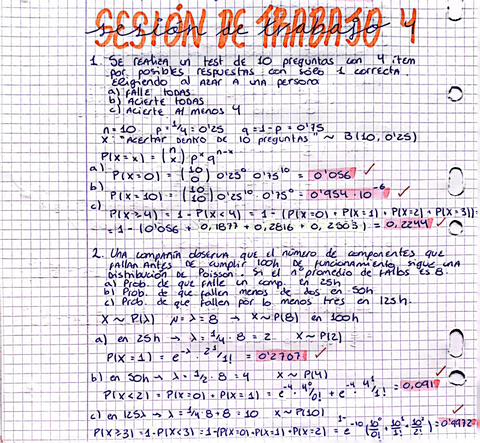 SESIÓN DE TRABAJO 4
sesión de trabajo
1. Se realiza un test de 10 preguntas con 4 item
por posibles respuestas con sólo 1 correcta.
Eligiendo al azar a una persona
a) Falle todas
b) Acierte todas
c) Acierte al menos 4
n=10 p=1/4=0'25 q=1-p=0'75
X: "Acertar dentro de 10 preguntas" ~ B(10, 0'25)
P(X=x) = (n x) p^x q^n-x
a) P(X=0) = (10 0) 0'25^0 0'75^10 = 0'056 ✓
b) P(X=10) = (10 10) 0'25^10 0'75^0 = 0'954·10^-6 ✓
c) P(X≥4) = 1 - P(X<4) = 1 - (P(X=0) + P(X=1) + P(X=2) + P(X=3)) =
= 1 - (0'056 + 0,1877 + 0,2816 + 0,2503) = 0,2244 ✓
2. Una compañía observa que el número de componentes que
fallan antes de cumplir 100h de funcionamiento sigue una
distribución de Poisson. Si el nº promedio de fallos es 8.
a) Prob. de que falle un comp. en 25h
b) Prob. de que fallen menos de dos en 50h
c) Prob. de que fallen por lo menos tres en 125h.
X ~ P(λ) μ=λ=8 → X~P(8) en 100h
a) en 25h → λ=1/4·8=2 X~P(2)
P(X=1) = e^-2·2^1/1! = 0'2707 ✓
b) en 50h → λ=1/2·8=4 X~P(4)
P(X<2) = P(X=0) + P(X=1) = e^-4·4^0/0! + e^-4·4^1/1! = 0,091 ✓
c) en 125h → λ=1/4·8+8=10 X~P(10)
P(X≥3) = 1-P(X<3) = 1-(P(X=0)+P(X=1)+P(X=2) = 1-e^-10(10^0/0!+10^1/1!+10^2/2!) = 0'9972 ✓